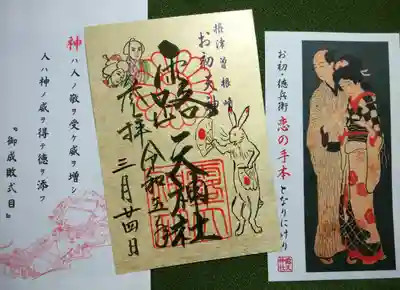 神ハ人ノ敬ヲ受ケ威ヲ増シ
人ハ神ノ威ヲ得テ徳ヲ添フ
『御成敗式目』
摂津曽根崎
お初天神
露天神社
参拝
令和五年
三月廿四日
お初・徳兵衛
恋の手本
となりにけり
露天神社